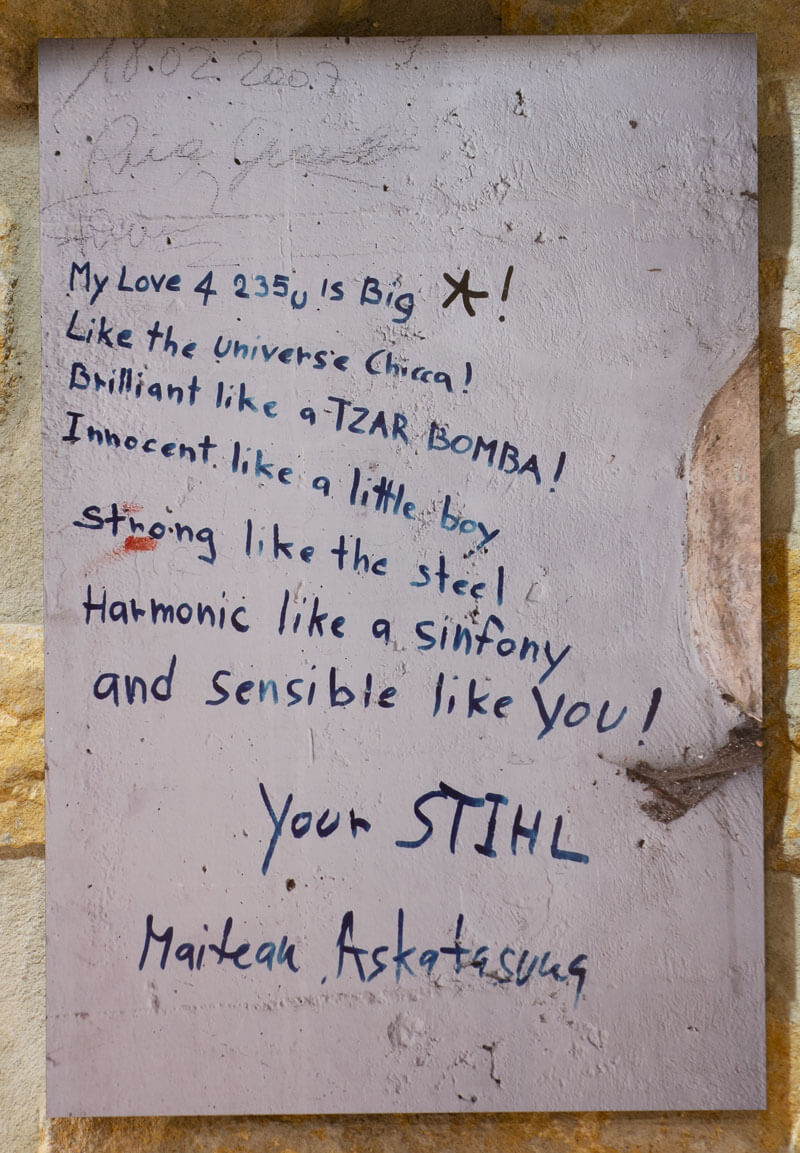 18.02.2007
My Love 4 235U is Big *!
Like the universe Chicca!
Brilliant like a TZAR BOMBA!
Innocent like a little boy
Strong like the steel
Harmonic like a sinfony
and sensible like YOU!
Your STIHL
Maitean Askatasuna